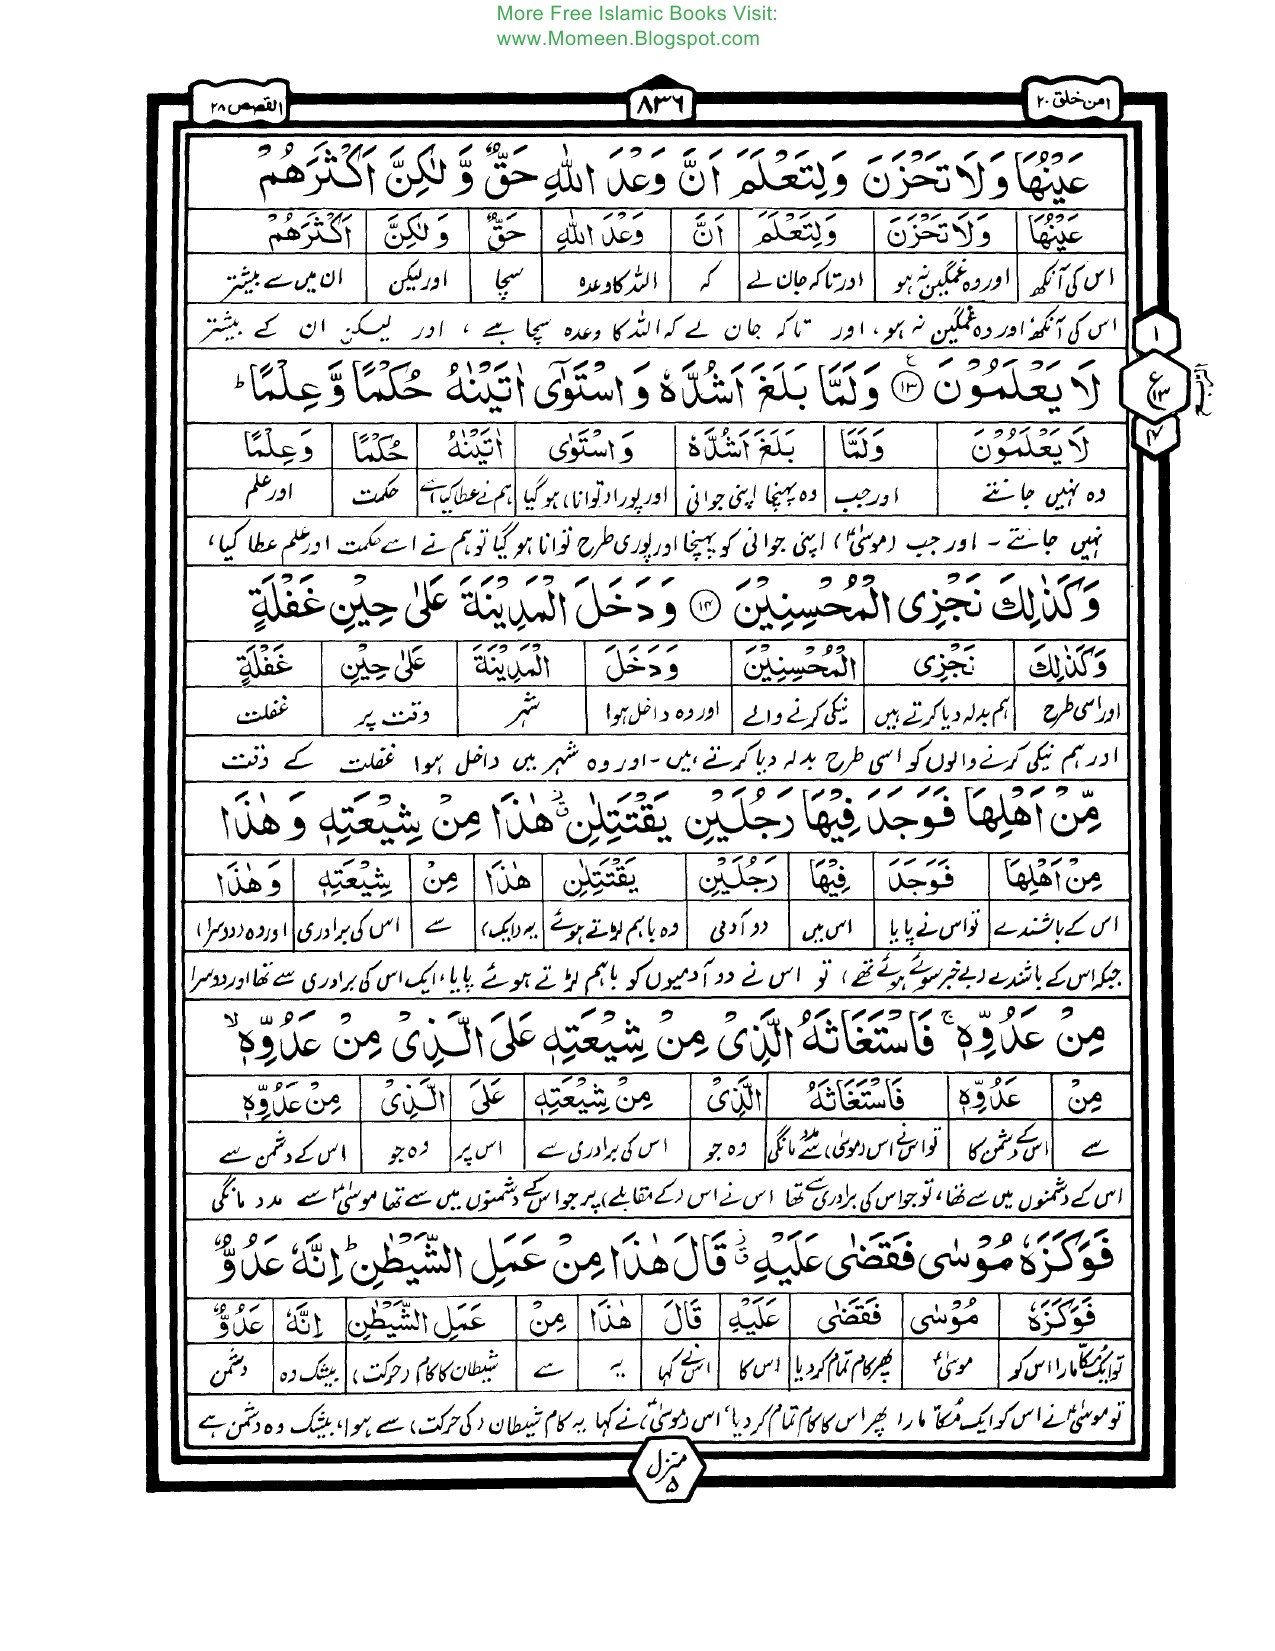 More Free Islamic Books Visit:
www.Momeen.Blogspot.com
امن خلق ۲۰
۸۳۶
القصص ۲۸
عَيْنُهَا وَلَا تَحْزَنَ وَلِتَعْلَمَ اَنَّ وَعْدَ اللّٰهِ حَقٌّ وَّ لٰكِنَّ اَكْثَرَهُمْ
عَيْنُهَا وَلَا تَحْزَنَ وَلِتَعْلَمَ اَنَّ وَعْدَ اللّٰهِ حَقٌّ وَ لٰكِنَّ اَكْثَرَهُمْ
اس کی آنکھ اور وہ غمگین نہ ہو اور تاکہ جان لے کہ اللہ کا وعدہ سچا اور لیکن ان میں سے بیشتر
اس کی آنکھ، اور وہ غمگین نہ ہو، اور تاکہ جان لے کہ اللہ کا وعدہ سچا ہے، اور لیکن ان کے بیشتر
۱
لَا يَعْلَمُوْنَ ۱۳ وَلَمَّا بَلَغَ اَشُدَّهٗ وَ اسْتَوٰٓى اٰتَيْنٰهُ حُكْمًا وَّ عِلْمًا ؕ
ع
۱۳
۴
لَا يَعْلَمُوْنَ وَلَمَّا بَلَغَ اَشُدَّهٗ وَ اسْتَوٰى اٰتَيْنٰهُ حُكْمًا وَ عِلْمًا
وہ نہیں جانتے اور جب وہ پہنچا اپنی جوانی اور پورا (توانا) ہو گیا ہم نے عطا کیا اسے حکمت اور علم
نہیں جانتے ۔ اور جب (موسیٰؑ) اپنی جوانی کو پہنچا اور پوری طرح توانا ہو گیا تو ہم نے اسے حکمت اور علم عطا کیا،
وَ كَذٰلِكَ نَجْزِى الْمُحْسِنِيْنَ ۱۴ وَ دَخَلَ الْمَدِيْنَةَ عَلٰى حِيْنِ غَفْلَةٍ
وَ كَذٰلِكَ نَجْزِى الْمُحْسِنِيْنَ وَ دَخَلَ الْمَدِيْنَةَ عَلٰى حِيْنِ غَفْلَةٍ
اور اسی طرح ہم بدلہ دیا کرتے ہیں نیکی کرنے والے اور وہ داخل ہوا شہر وقت پر غفلت
اور ہم نیکی کرنے والوں کو اسی طرح بدلہ دیا کرتے ہیں ۔ اور وہ شہر میں داخل ہوا غفلت کے وقت
مِّنْ اَهْلِهَا فَوَجَدَ فِيْهَا رَجُلَيْنِ يَقْتَتِلٰنِ هٰذَا مِنْ شِيْعَتِهٖ وَ هٰذَا
مِنْ اَهْلِهَا فَوَجَدَ فِيْهَا رَجُلَيْنِ يَقْتَتِلٰنِ هٰذَا مِنْ شِيْعَتِهٖ وَ هٰذَا
اس کے باشندے تو اس نے پایا اس میں دو آدمی وہ باہم لڑتے ہوئے یہ (ایک) سے اس کی برادری اور وہ (دوسرا)
جبکہ اس کے باشندے (بے خبر سوئے ہوئے تھے) تو اس نے دو آدمیوں کو باہم لڑتے ہوئے پایا، ایک اس کی برادری سے تھا اور دوسرا
مِنْ عَدُوِّهٖ ۚ فَاسْتَغَاثَهُ الَّذِىْ مِنْ شِيْعَتِهٖ عَلَى الَّذِىْ مِنْ عَدُوِّهٖ ۙ
مِنْ عَدُوِّهٖ فَاسْتَغَاثَهُ الَّذِىْ مِنْ شِيْعَتِهٖ عَلَى الَّذِىْ مِنْ عَدُوِّهٖ
سے اس کے دشمن کا تو اس نے اس (موسیٰ) سے مدد مانگی وہ جو اس کی برادری سے اس پر وہ جو اس کے دشمن سے
اس کے دشمنوں میں سے تھا، تو جو اس کی برادری سے تھا اس نے اس (کے مقابلے) پر جو اس کے دشمنوں میں سے تھا موسیٰؑ سے مدد مانگی
فَوَكَزَهٗ مُوْسٰى فَقَضٰى عَلَيْهِ قَالَ هٰذَا مِنْ عَمَلِ الشَّيْطٰنِ ؕ اِنَّهٗ عَدُوٌّ
فَوَكَزَهٗ مُوْسٰى فَقَضٰى عَلَيْهِ قَالَ هٰذَا مِنْ عَمَلِ الشَّيْطٰنِ اِنَّهٗ عَدُوٌّ
تو ایک مکا مارا اس کو موسیٰؑ پھر کام تمام کر دیا اس کا اس نے کہا یہ سے شیطان کا کام (حرکت) بیشک وہ دشمن
تو موسیٰؑ نے اس کو ایک مُکا مارا پھر اس کا کام تمام کر دیا، اس (موسیٰؑ) نے کہا یہ کام شیطان (کی حرکت) سے ہوا، بیشک وہ دشمن ہے
منزل ۵